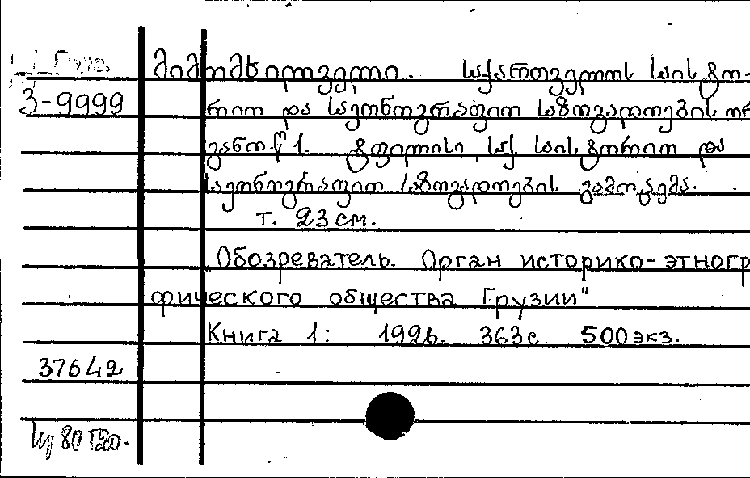 მიმომხილველი. საქართველოს საისტო-
3-9999 რიო და საეთნოგრაფიო საზოგადოების ორ
განო წ 1. ტფილისი, საქ. საისტორიო და
საეთნოგრაფიო საზოგადოების გამოცემა.
т. 23 см.
Обозреватель. Орган историко-этногр
фического общества Грузии"
Книга 1: 1926. 363 с 500 экз.
37642